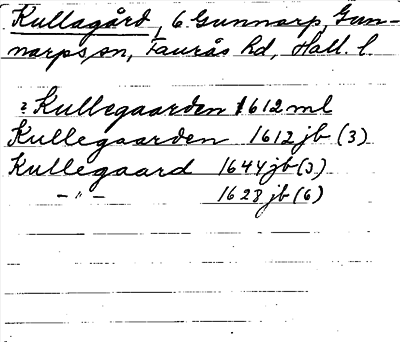 Kullagård, 6 Gunnarp, Gun-
narps sn, Faurås hd, Hall. l.
? Kullegaarden 1612 ml
Kullegaarden 1612 jb (3)
Kullegaard 1644 jb (3)
— " — 1628 jb (6)